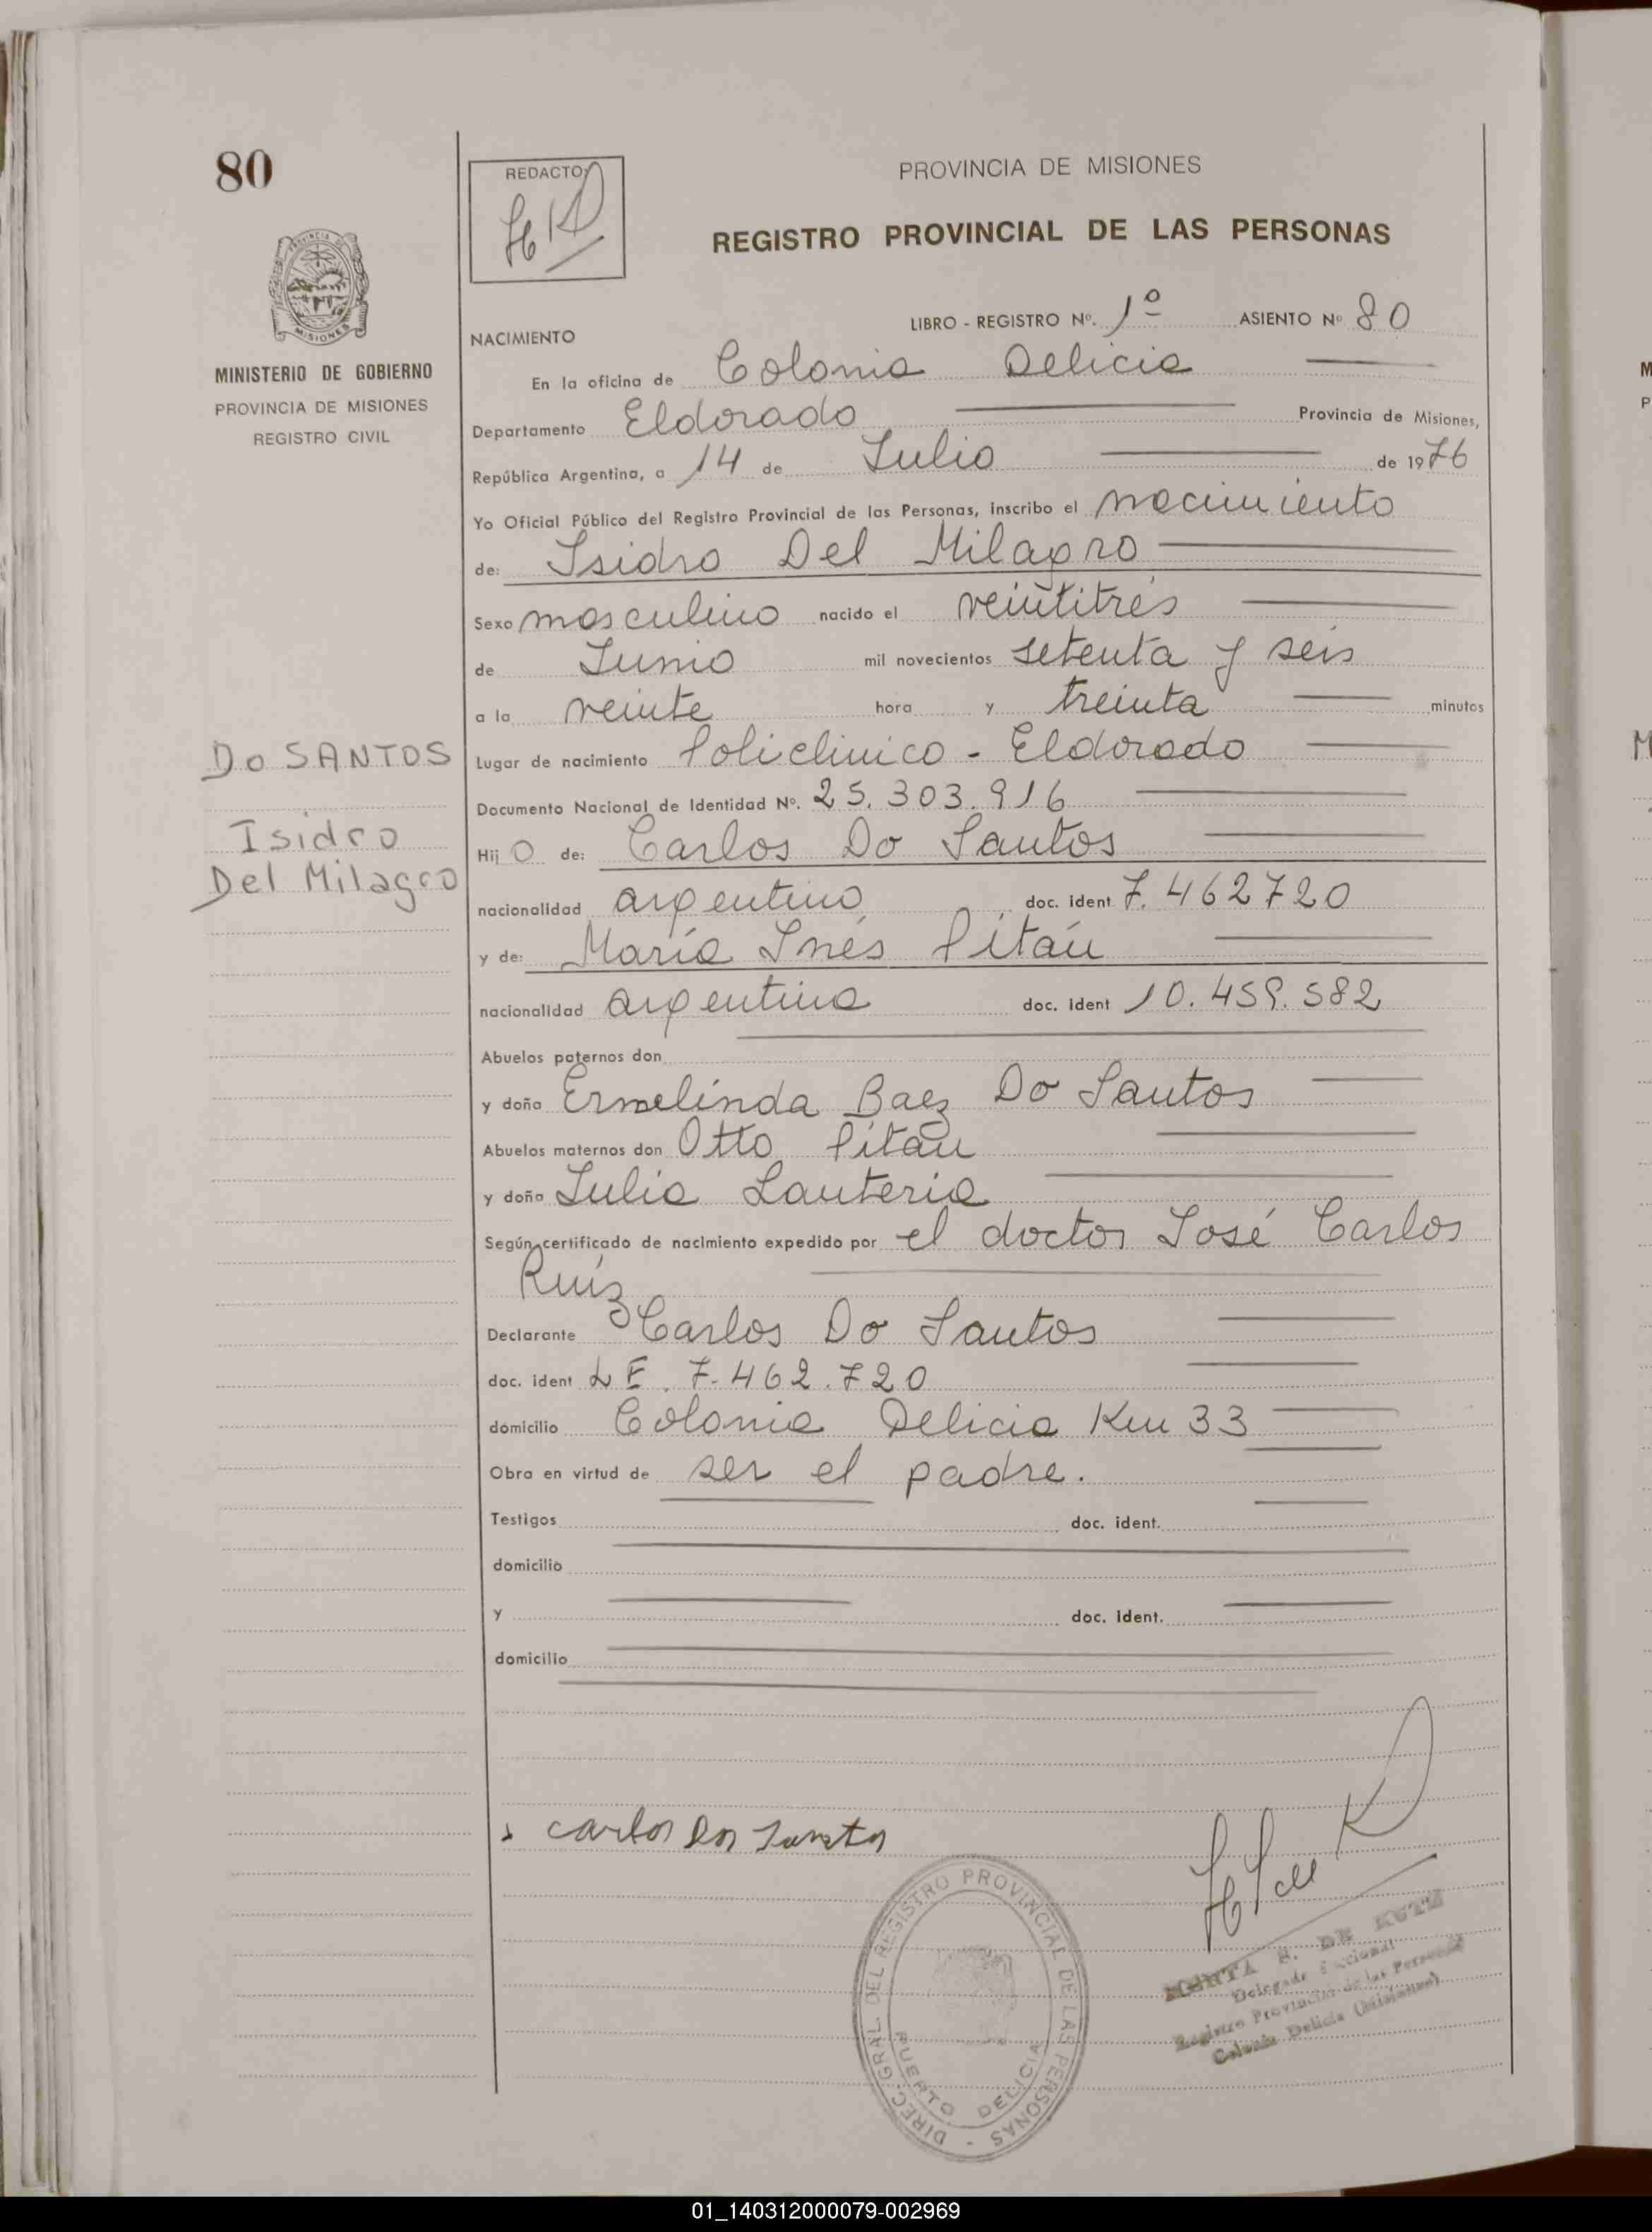 80
REDACTO:
PROVINCIA DE MISIONES
REGISTRO PROVINCIAL DE LAS PERSONAS
PROVINCIA DE
MISIONES
MINISTERIO DE GOBIERNO
PROVINCIA DE MISIONES
REGISTRO CIVIL
LIBRO - REGISTRO Nº. 1º ASIENTO Nº 80
NACIMIENTO
En la oficina de Colonia Delicia
Departamento Eldorado Provincia de Misiones,
República Argentina, a 14 de Julio de 1976
Yo Oficial Público del Registro Provincial de las Personas, inscribo el nacimiento
de: Isidro Del Milagro
Sexo masculino nacido el veintitrés
de Junio mil novecientos setenta y seis
a la veinte hora y treinta minutos
DO SANTOS
Isidro
Del Milagro
Lugar de nacimiento Policlinico - Eldorado
Documento Nacional de Identidad Nº. 25.303.916
Hij O de: Carlos Do Santos
nacionalidad argentino doc. ident 7.462720
y de: María Inés Pitaú
nacionalidad argentina doc. ident 10.459.582
Abuelos paternos don
y doña Ermelinda Baez Do Santos
Abuelos maternos don Otto Pitaú
y doña Julia Lauteria
Según certificado de nacimiento expedido por el doctor José Carlos
Ruíz
Declarante Carlos Do Santos
doc. ident L E. 7.462.720
domicilio Colonia Delicia Km 33
Obra en virtud de ser el padre.
Testigos doc. ident.
domicilio
y doc. ident.
domicilio
carlos Dos Santos
DIREC. GRAL. DEL REGISTRO PROVINCIAL DE LAS PERSONAS -
PUERTO DELICIA
DE
Delegada
Registro Provincial de las Personas
Colonia Delicia (Misiones)
M
P
M
01_140312000079-002969